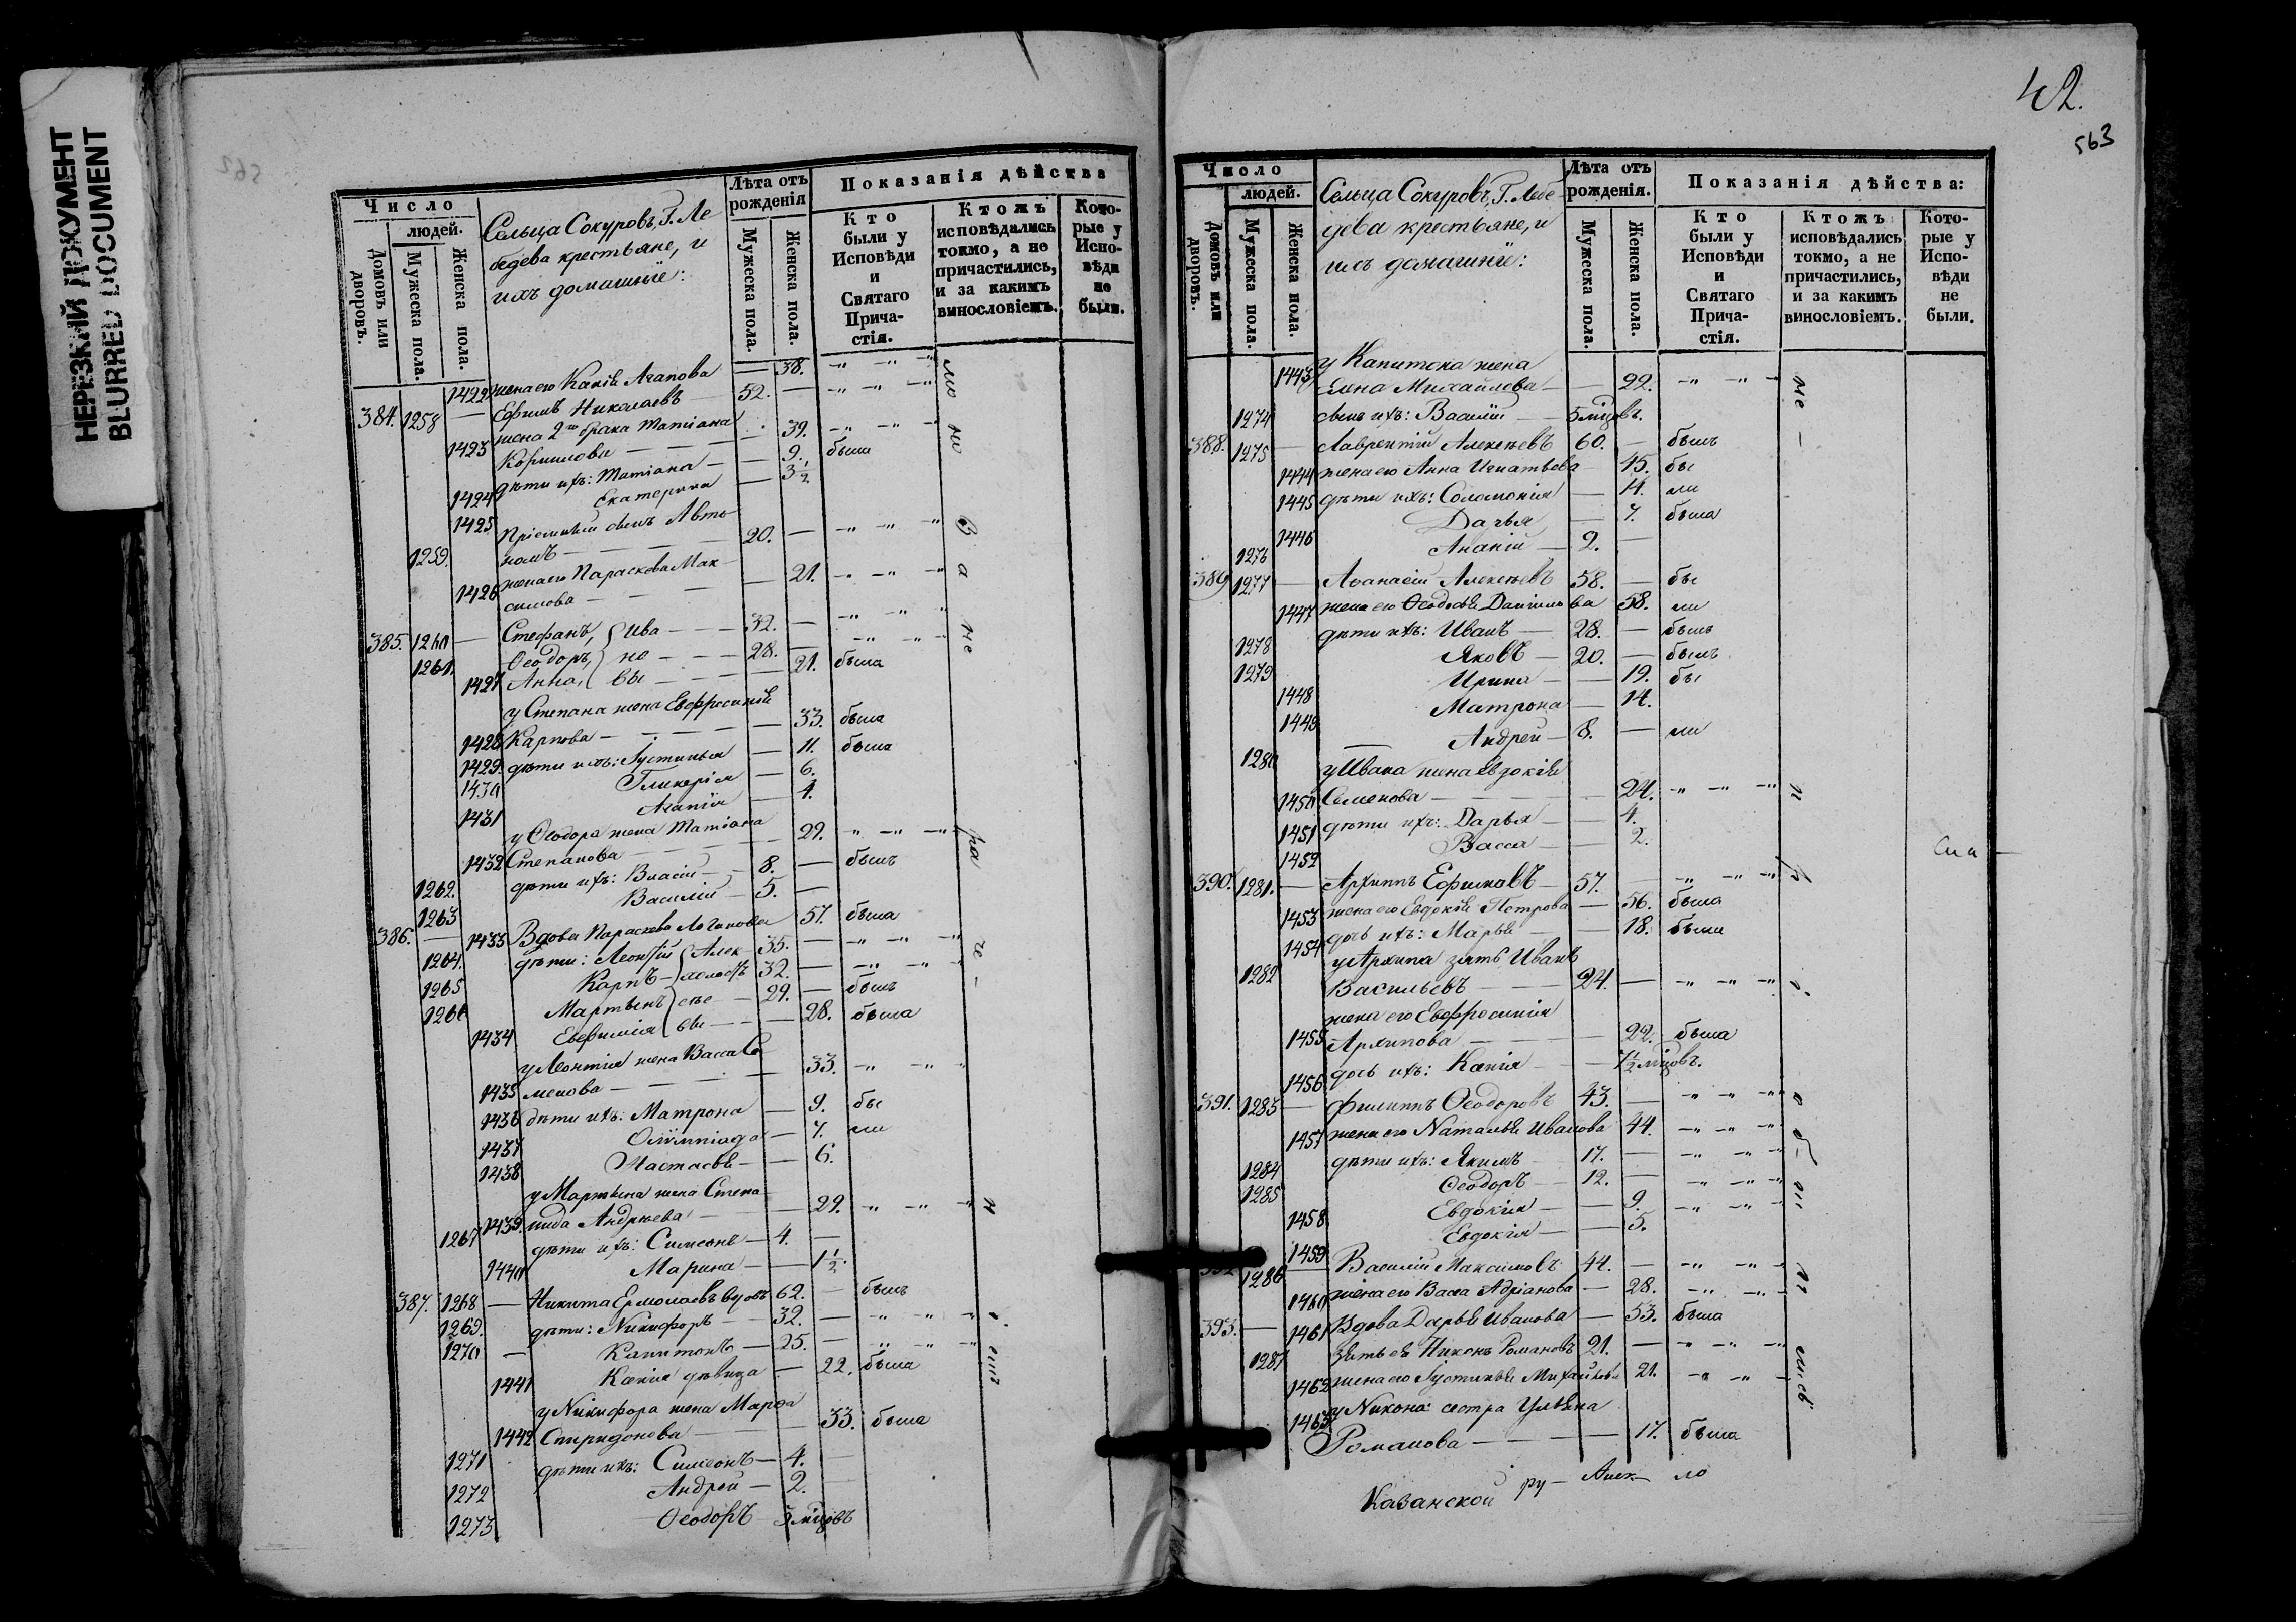 НЕРЕЗКИЙ ДОКУМЕНТ
BLURRED DOCUMENT
Число
людей.
Домовъ или дворовъ.
Мужеска пола.
Женска пола.
Сельца Сокуровъ, Г. Ле
бедева крестьяне, и
ихъ домашніе:
Лѣта отъ рожденія
Мужеска пола.
Женска пола.
Показанія дѣйства
Кто были у Исповѣди и Святаго Прича-стія.
Ктожъ исповѣдались токмо, а не причастились, и за какимъ винословіемъ.
Кото-рые у Испо-вѣди не были.
1422 жена его Ксенія Агапова — 38. -"- -"- -"
384. 1258 — Ефимъ Николаевъ 52. — -"- -"- -"
жена 2го брака Татіана
1423 Корнилова — 39. -"- -"- -"
1424 дѣти ихъ: Татіана — 9. была
1425 Екатерина — 3 1/2
Пріемный сынъ Авто
1259. номъ — 20. — -"- -"- -"
1426 жена его Параскева Мак-
симова — 21. -"- -"- -"
385. 1260 — Стефанъ, Ива — 32. — -"- -"- -"
1261. Ѳеодоръ, но — 28. — -"- -"- -"
1427 Анна, вы — 21. была
у Степана жена Евфросинія
1428 Карпова — 33. была
1429. дѣти ихъ: Іустинья — 11. была
1430 Гликерія — 6.
1431 Агапія — 4.
у Ѳеодора жена Татіана
1432 Степанова — 29. " -"- -"-
1262. дѣти ихъ: Власій — 8. — былъ
1263 Василій — 5. —
386. — 1433 Вдова Параскева Логинова 57. была
1264. дѣти: Леонтій Алек 35. — -"- -"- -"
1265 Карпъ 32. — -"- -"- -"
1266 Мартынъ сѣе 29. — былъ
1434 Евфимія вы — 28. была
у Леонтія жена Васса Се
1435 менова — 33. -"- -"- "
1436 дѣти ихъ: Матрона — 9. бы
1437 Олимпіада — 7. ли
1438 Настасья — 6.
у Мартына жена Степа
1439. нида Андреева — 29. -"- -"- -"
1267 дѣти ихъ: Симеонъ — 4. —
1440 Марина — 1 1/2.
387. 1268 — Никита Ермолаевъ вдовъ 62. — былъ
1269. дѣти: Никифоръ — 32. — -" " " "
1270 — Капитонъ — 25. — -"- -"- -"
1441 Ксенія дѣвица — 22. была
у Никифора жена Марѳа
1442 Спиридонова — 33. была
1271 дѣти ихъ: Симеонъ — 4. —
1272 Андрей — 2. —
1273 Ѳеодоръ — 3 мцовъ
42.
563
Число
людей.
Домовъ или дворовъ.
Мужеска пола.
Женска пола.
Сельца Сокуровъ, Г. Лебе
дева крестьяне, и
ихъ домашніе:
Лѣта отъ рожденія.
Мужеска пола.
Женска пола.
Показанія дѣйства:
Кто были у Исповѣди и Святаго Прича-стія.
Ктожъ исповѣдались токмо, а не причастились, и за какимъ винословіемъ.
Кото-рые у Испо-вѣди не были.
у Капитона жена
1443 Елена Михайлова — 22. -"- -"- -
1274 сынъ ихъ: Василій — 5 мцовъ.
388. 1275 — Лаврентій Алексѣевъ 60. — былъ
1444 жена его Анна Игнатьева — 45. бы
1445 дѣти ихъ: Соломонія — 14. ли
1446 Дарья — 7. была
1276 Ананій — 2. —
389 1277 — Аѳанасій Алексѣевъ 58. — бы
1447 жена его Ѳеодосья Данилова 58. ли
1278 дѣти ихъ: Иванъ — 28. — былъ
1279 Яковъ — 20. — былъ
1448 Ирина — 19. бы
1449 Матрона — 14.
1280 Андрей — 8. — ли
у Ивана жена Евдокія
1450 Семенова — 24. -"- -"- -"
1451 дѣти ихъ: Дарья — 4.
1452 Васса — 2.
390. 1281. — Архиппъ Ефимовъ — 57. — -"- -"- -"
1453 жена его Евдокія Петрова — 56. была
1454 дочь ихъ: Марья — 18. была
у Архипа зять Иванъ
1282 Васильевъ — 24. — -"- -"- -"
жена его Евфросинія
1455 Архипова — 22. была
1456 дочь ихъ: Ксенія — 7 1/2 мцовъ.
391. 1283 — Филиппъ Ѳеодоровъ 43. — -"- -"- -"
1457 жена его Наталья Иванова 44. -"- -"- -"
1284 дѣти ихъ: Якимъ — 17. — -"- -"- -"
1285 Ѳеодоръ — 12. — -"- -"- -"
1458 Евдокія — 9. -"- -"- -"
1459 Евдокія — 5.
1286 — Василій Максимовъ 44. — -"- -"- -
1460 жена его Васса Адріанова — 28. -"- -"-
393. — 1461 Вдова Дарья Иванова — 53. была
1287 зять ея Никонъ Романовъ 21. — -"- -"- -"
1462 жена его Іустинья Михайлова 21. -"- -"-
1463 у Никона сестра Ульяна
Романова — 17. была
Казанской ру — Алек — ло